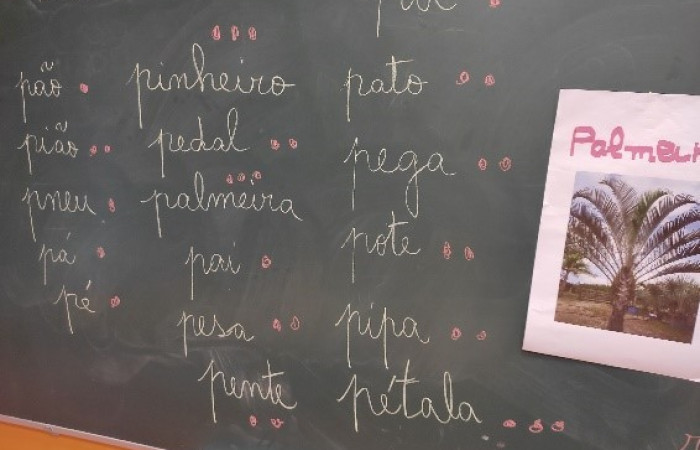 pão
pião
pneu
pá
pé
pinheiro
pedal
palmeira
pai
pesa
pente
pato
pega
pote
pipa
pétala